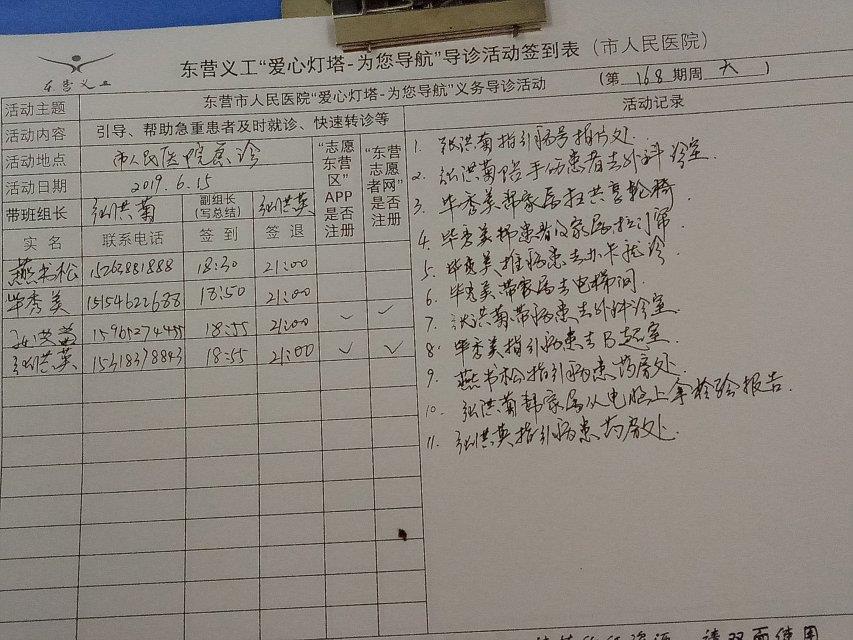 东营义工“爱心灯塔-为您导航”导诊活动签到表（市人民医院）
东营义工
（第 168 期周 六 ）
活动主题 东营市人民医院“爱心灯塔-为您导航”义务导诊活动 活动记录
活动内容 引导、帮助急重患者及时就诊、快速转诊等
活动地点 市人民医院急诊
活动日期 2019.6.15
带班组长 张洪菊 副组长（写总结） 张洪英
“志愿东营区”APP是否注册
“东营志愿者网”是否注册
实名 联系电话 签到 签退
燕书松 15263881888 18:30 21:00
毕秀美 15154622688 18:50 21:00
18:55 21:00 ✓ ✓
张洪英 15318378843 18:55 21:00 ✓ ✓
1. 张洪菊指引病号拍片处.
2. 张洪菊陪手伤患者去外科诊室.
3. 毕秀美帮家属扫共享轮椅
4. 毕秀美梆患者及家属拉门帘
5. 毕秀美推病患去办卡就诊
6. 毕秀美带家属去电梯间.
7. 张洪菊带病患去外科诊室.
8. 毕秀美指引病患去B超室.
9. 燕书松指引病患药房处.
10. 张洪菊帮家属从电脑上拿检验报告.
11. 张洪英指引病患药房处.
请双面使用